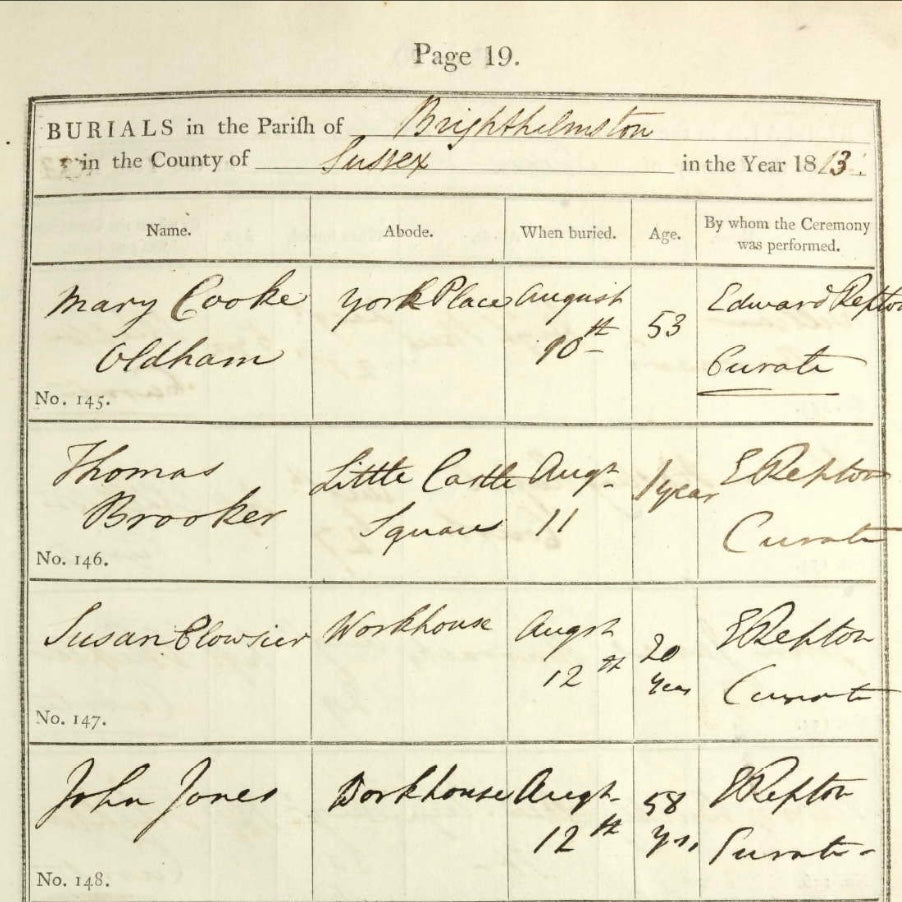 Page 19.
BURIALS in the Parish of Brighthelmston
in the County of Sussex in the Year 1813.
Name. Abode. When buried. Age. By whom the Ceremony was performed.
Mary Cooke York Place August 53 Edward Repton
Oldham 10th Curate
No. 145.
Thomas Little Castle Augt. 1 year E Repton
Brooker Square 11 Curate
No. 146.
Susan Clowsier Workhouse Augst 20 E Repton
12th Years Curate
No. 147.
John Jones Workhouse Augt. 58 E Repton
12th Yrs. Curate
No. 148.